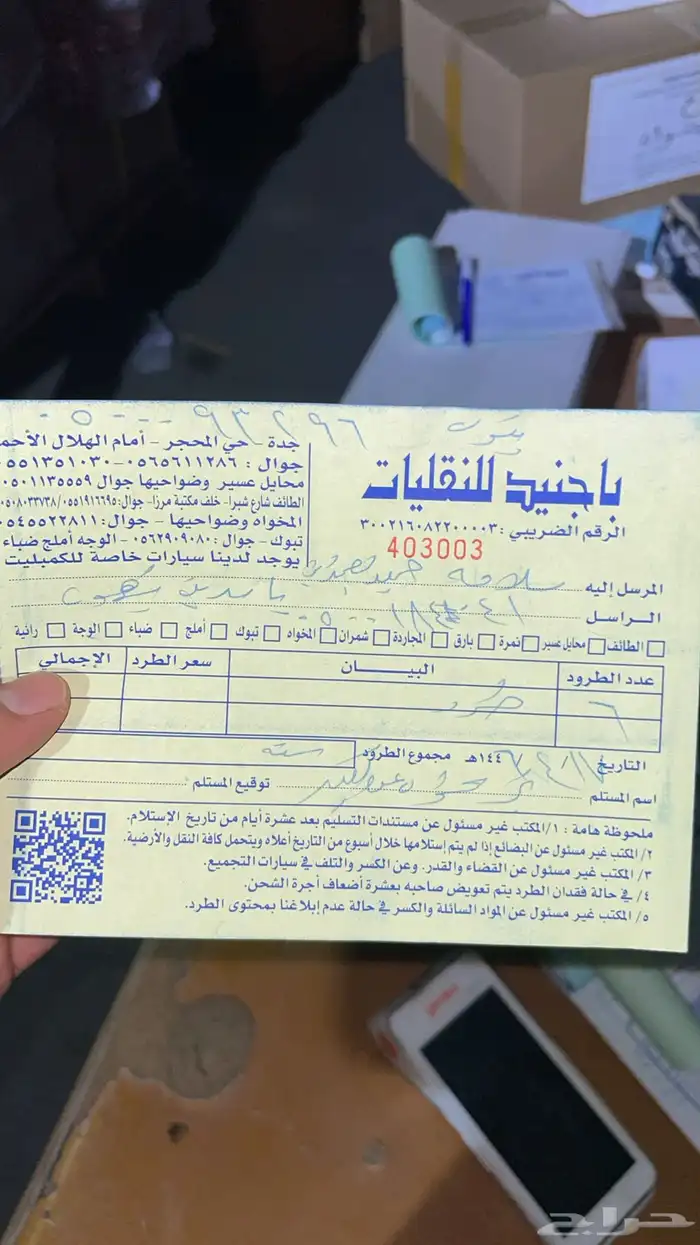 باجنيد للنقليات
الرقم الضريبي : ٣٠٠٢١٦٠٨٢٢٠٠٠٠٣
403003
جدة - حي المحجر - أمام الهلال الأحمر
جوال : ٠٥٦٥٦١١٢٨٦ - ٠٥٥١٣٥١٠٣٠
محايل عسير وضواحيها جوال ٠٥٠١١٣٥٥٥٩
الطائف شارع شبرا - خلف مكتبة مرزا - جوال: ٠٥٥١٩١٦٦٩٥/٠٥٠٨٠٣٣٧٣٨
المخواه وضواحيها - جوال: ٠٥٤٥٥٢٢٨١١
تبوك - جوال : ٠٥٦٢٩٠٩٠٨٠ - الوجه أملج ضباء
يوجد لدينا سيارات خاصة للكمبليت
المرسل إليه
الراسل
الطائف محايل عسير نمرة بارق المجاردة شمران المخواه تبوك أملج ضباء الوجة رانية
عدد الطرود البيـــان سعر الطرد الإجمالي
٦
التاريخ ١٤٤هـ مجموع الطرود سته
اسم المستلم توقيع المستلم
ملحوظة هامة : ١/ المكتب غير مسئول عن مستندات التسليم بعد عشرة أيام من تاريخ الإستلام.
٢/ المكتب غير مسئول عن البضائع إذا لم يتم إستلامها خلال أسبوع من التاريخ أعلاه ويتحمل كافة النقل والأرضية.
٣/ المكتب غير مسئول عن القضاء والقدر. وعن الكسر والتلف في سيارات التجميع.
٤/ في حالة فقدان الطرد يتم تعويض صاحبه بعشرة أضعاف أجرة الشحن.
٥/ المكتب غير مسئول عن المواد السائلة والكسر في حالة عدم إبلاغنا بمحتوى الطرد.
حراج